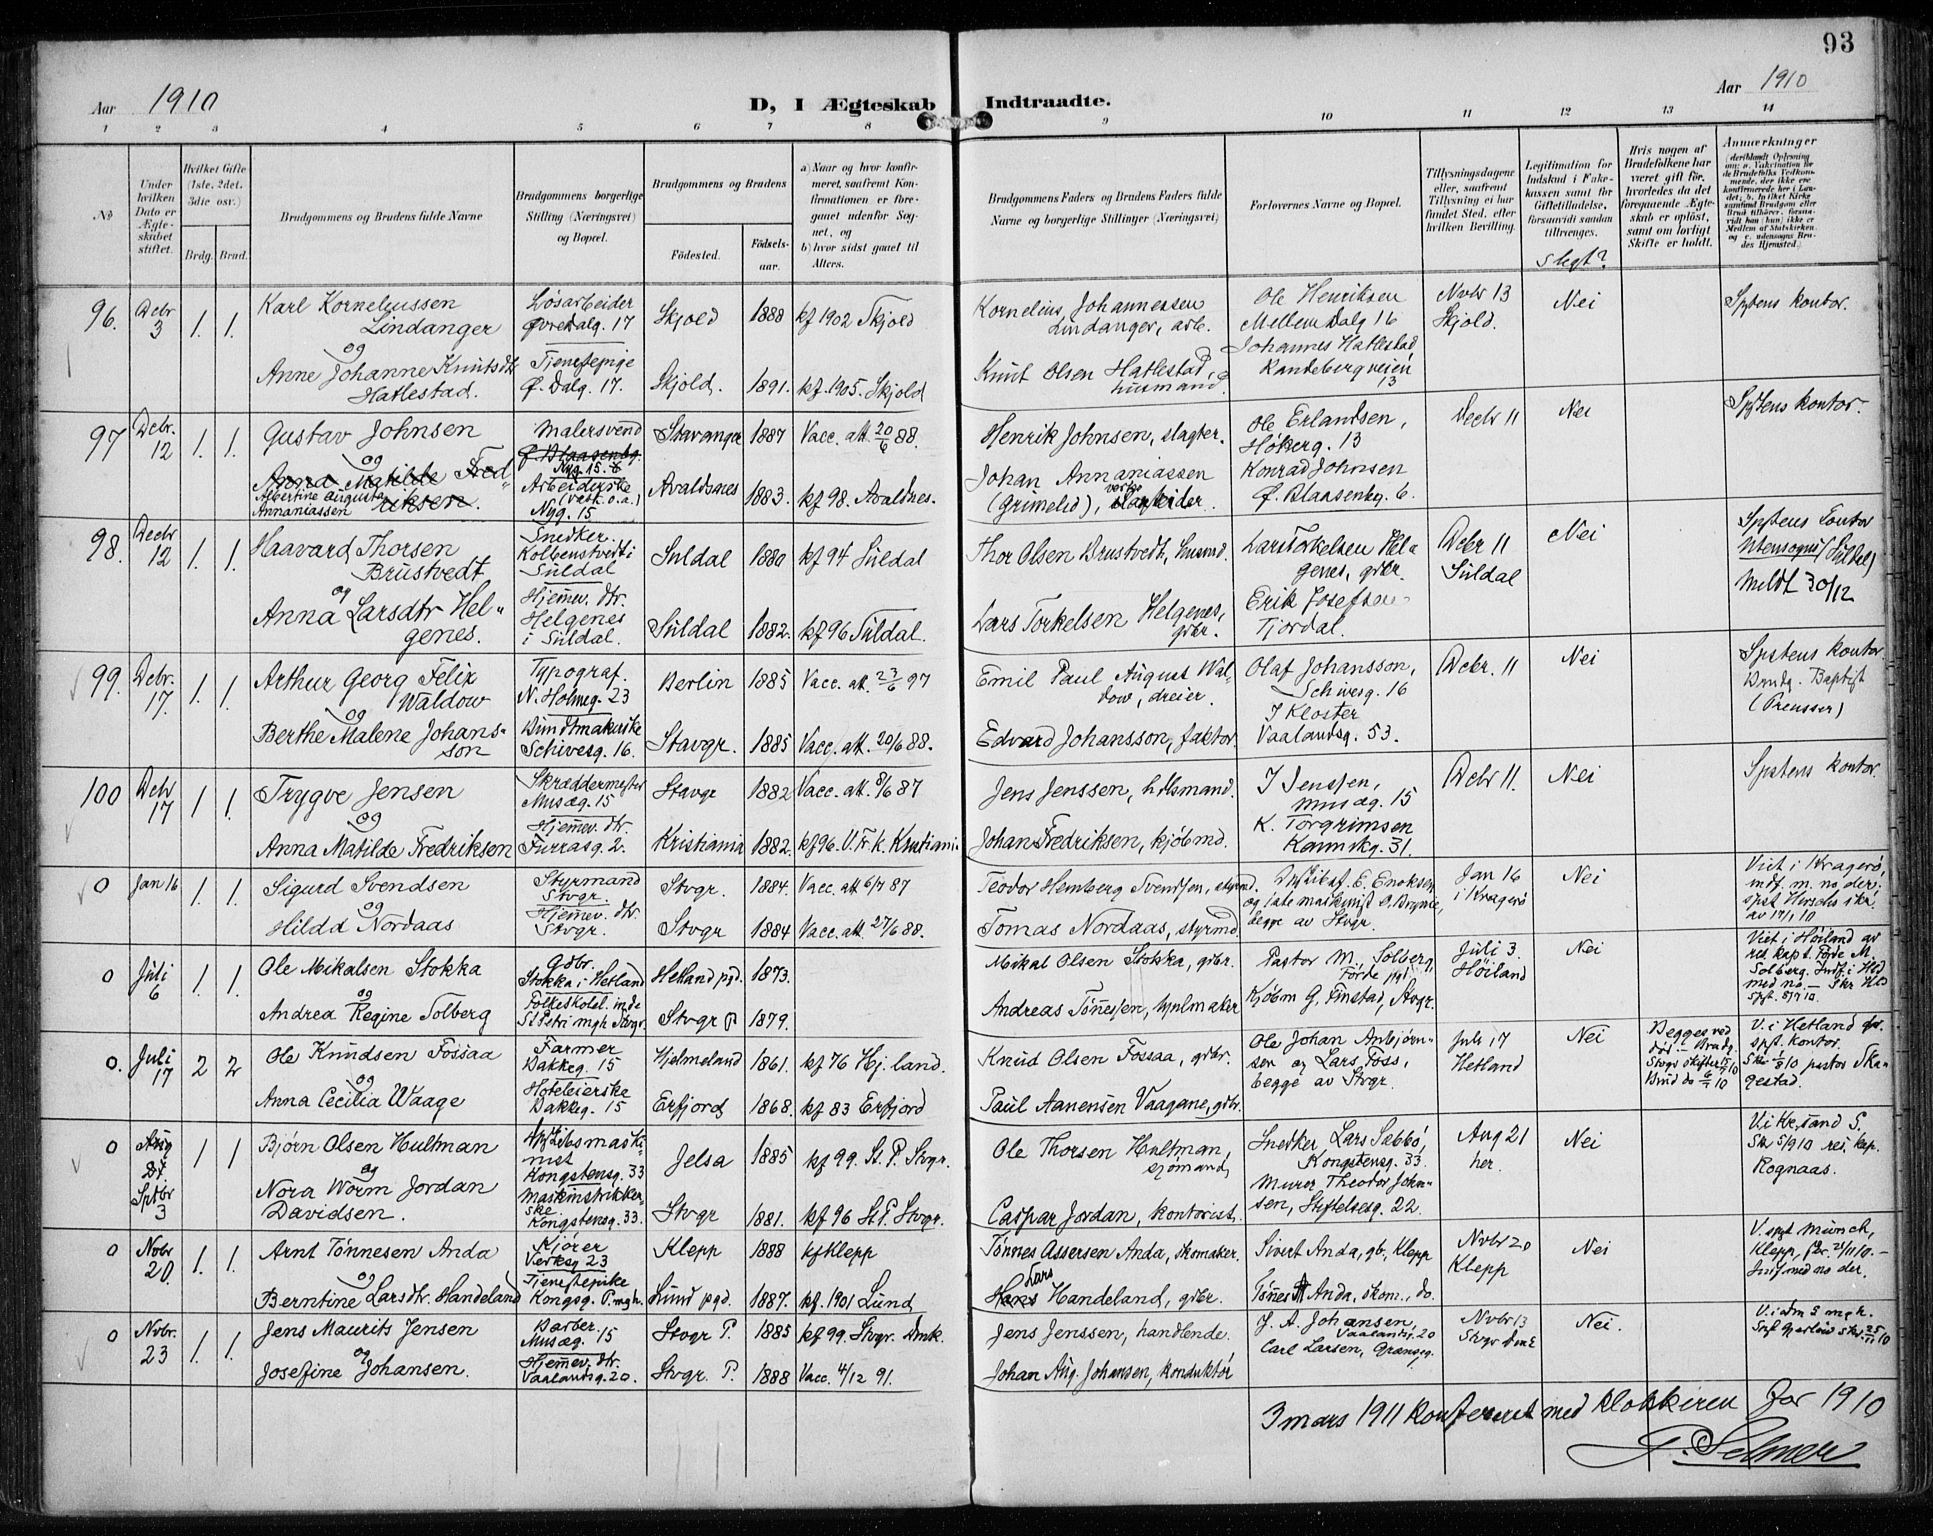 93
Aar 1910
D, I Ægteskab Indtraadte.
Aar 1910
1 2 3 4 5 6 7 8 9 10 11 12 13 14
No
Under hvilken Dato er Ægteskabet stiftet.
Hvilket Gifte (1ste, 2det, 3die osv.)
Brdg. Brud.
Brudgommens og Brudens fulde Navne
Brudgommens borgerlige Stilling (Næringsvei) og Bopæl.
Brudgommens og Brudens
Fødested.
Fødselsaar.
a) Naar og hvor konfirmeret, saafremt Konfirmationen er foregaaet udenfor Sognet, og
b) hvor sidst gaaet til Alters.
Brudgommens Faders og Brudens Faders fulde Navne og borgerlige Stillinger (Næringsvei)
Forlovernes Navne og Bopæl.
Tillysningsdagene eller, saafremt Tillysning ei har fundet Sted, efter hvilken Bevilling.
Legitimation for Indskud i Fakekassen samt for Giftetilladelse, forsaavidt saadan tiltrænges.
Slegt?
Hvis nogen af Brudefolkene har været gift før, hvorledes da det foregaaende Ægteskab er opløst, samt om lovligt Skifte er holdt.
Anmærkninger
96. Decbr 3 1. 1. Karl Korneliussen Lindanger
Løsarbeider Øvre Dalg. 17
Skjold 1888 kf 1902 Skjold
Kornelius Johannessen Lindanger, arb.
Ole Henriksen Mellem Dalg 16
Novbr 13 Skjold.
Nei
Sptens kontor.
og
Anne Johanne Knutsdtr Hatlestad.
Tjenestepige Ø. Dalg. 17.
Skjold. 1891. kf. 1905. Skjold
Knut Olsen Hatlestad, husmand
Johannes Hatlestad Randebergveien 13
97 Decbr. 12 1. 1. Gustav Johnsen
Malersvend Ø Blaasenbg.
Nyg. 15.
Stavanger 1887 Vacc. att. 20/6 88.
Henrik Johnsen, slagter.
Ole Erlandsen, Høkerg. 13
Decbr 11
Nei
Sptens kontor.
og
Anna Matilde Fredriksen.
Albertine Augusta Annaniassen
Arbeiderske (vask. o.a.) Nyg. 15
Avaldsnes 1883. kf 98. Avaldnes.
Johan Annaniassen (Grimelid),
Konrad Johnsen Ø. Blaasenbg. 6.
98. Decbr 12 1. 1. Haavard Thorsen Brustvedt
Snedker. Kolbenstvedt i Suldal
Suldal 1880 kf 94 Suldal
Thor Olsen Brustvedt, husmd.
Lars Torkelsen Helgenes, gbr.
Decbr 11 Suldal
Nei
Sptens kontor Utensogns (Suldal) Meldt 30/12
og
Anna Larsdtr Helgenes.
Hjemev. dtr. Helgenes i Suldal.
Suldal 1882. kf 96 Suldal.
Lars Torkelsen Helgenes, gbr.
Erik Josefsen Tjordal.
99. Decbr. 17. 1. 1. Arthur Georg Felix Waldow
Typograf. N. Holmeg. 23
Berlin 1885 Vacc. att. 23/6 97
Emil Paul August Waldow, dreier.
Olaf Johansson, Schivesg. 16
Decbr. 11
Nei
Sptens kontor. Brudg. Baptist (Preusser)
og
Berthe Malene Johansson
Buntmakerske Schivesg. 16.
Stavgr. 1885 Vacc. att. 20/6 88.
Edvard Johansson, faktor.
J Kloster Vaalandsg. 53.
100 Decbr 17 1 1. Trygve Jensen
Skræddermester Musæg. 15
Stavgr 1882 Vacc. att. 8/6 87
Jens Jenssen, hdlsmand.
J Jenssen, Musæg. 15
Decbr 11.
Nei
Sptens kontor.
og
Anna Matilde Fredriksen
Hjemev. dtr. Furrasg. 2.
Kristiania 1882. kf 96. V. Fr. k. Kristiania
Johan Fredriksen, kjøbmd.
K. Torgrimsen Kannikg. 31.
0 Jan 16 1. 1. Sigurd Svendsen
Styrmand Stvgr.
Stvgr. 1884. Vacc. att 6/7 87
Teodor Hemberg Svendsen, styrmd.
Jan 16 i Kragerø
Nei
Viet i Kragerø,
og
Hilda Nordaas
Hjemev. dtr. Stvgr.
Stvgr 1884 Vacc. att. 27/6 88.
Tomas Nordaas, styrmd.
begge av Stvgr.
0 Juli 6 1. 1. Ole Mikalsen Stokka
Gdbr. Stokka i Hetland
Hetland pgd. 1873.
Mikal Olsen Stokka, gbr.
Pastor M. Solberg, Førde pgd
Juli 3. Høiland
Nei
Viet i Høiland av res kap t. Førde M. Solberg.
og
Andrea Regine Solberg
St Petri mgh Stvgr.
Stvgr P 1879.
Andreas Tønnesen, hjulmaker
Kjøbm G. Finstad, Stvgr.
0. Juli 17 2 2 Ole Knudsen Fossaa
Farmer Bakkeg. 15
Hjelmeland 1861. kf 76 Hj.land.
Knud Olsen Fossaa, gbr.
Ole Johan Anbjørnsen og Lars Foss, begge av Stvgr.
Juli 17 Hetland
Nei
V. i Hetland
og
Anna Cecilia Waage
Hoteleierske Bakkeg. 15
Erfjord 1868. kf 83 Erfjord
Paul Aanensen Vaagane, gbr.
0 Aug Sptbr 3 1 1 Bjørn Olsen Hultman
Kongstensg. 33
Jelsa 1885 kf 99. St. P. Stvgr.
Ole Thorsen Hultman, sjømand,
Snedker Lars Sæbbø, Kongstensg. 33.
Aug 21 her.
Nei
V i Kr.sand S. Skr 5/9 10 res. kap. Rognaas.
og
Nora Worm Jordan Davidsen.
Maskinstrikkerske Kongstensg. 33.
Stvgr 1881. kf 96 St P. Stvgr.
Caspar Jordan, kontorist.
Murer Theodor Johnsen, Stiftelsesg. 22.
0 Novbr 20. 1. 1. Arnt Tønnesen Anda
Kjører Verksg 23
Klepp 1888 kf Klepp
Tønnes Assersen Anda, skomaker.
Sivert Anda, gb, Klepp
Novbr 20 Klepp
Nei
V. spt Münch, Klepp,
og
Berntine Larsdtr. Handeland
Tjenestepike Kongsg. P. mgh.
Lund pgd. 1887. kf. 1901 Lund
Lars
Hans Handeland, gbr.
Tønnes A Anda, skom., do.
0 Novbr. 23 1. 1. Jens Maurits Jensen
Barber. Musæg. 15
Stvgr P. 1885 kf 99. Stvgr. Dmk.
Jens Jenssen, handlende.
J. A. Johansen, Vaalandsg. 20
Novbr 13
Nei.
og
Josefine Johansen.
Hjemev. dtr. Vaalandsg. 20.
Stvgr. P. 1888 Vacc. 4/12 91.
Johan Aug. Johansen, konduktør
Carl Larsen,
3 mars 1911 konfereret med klokkeren for 1910